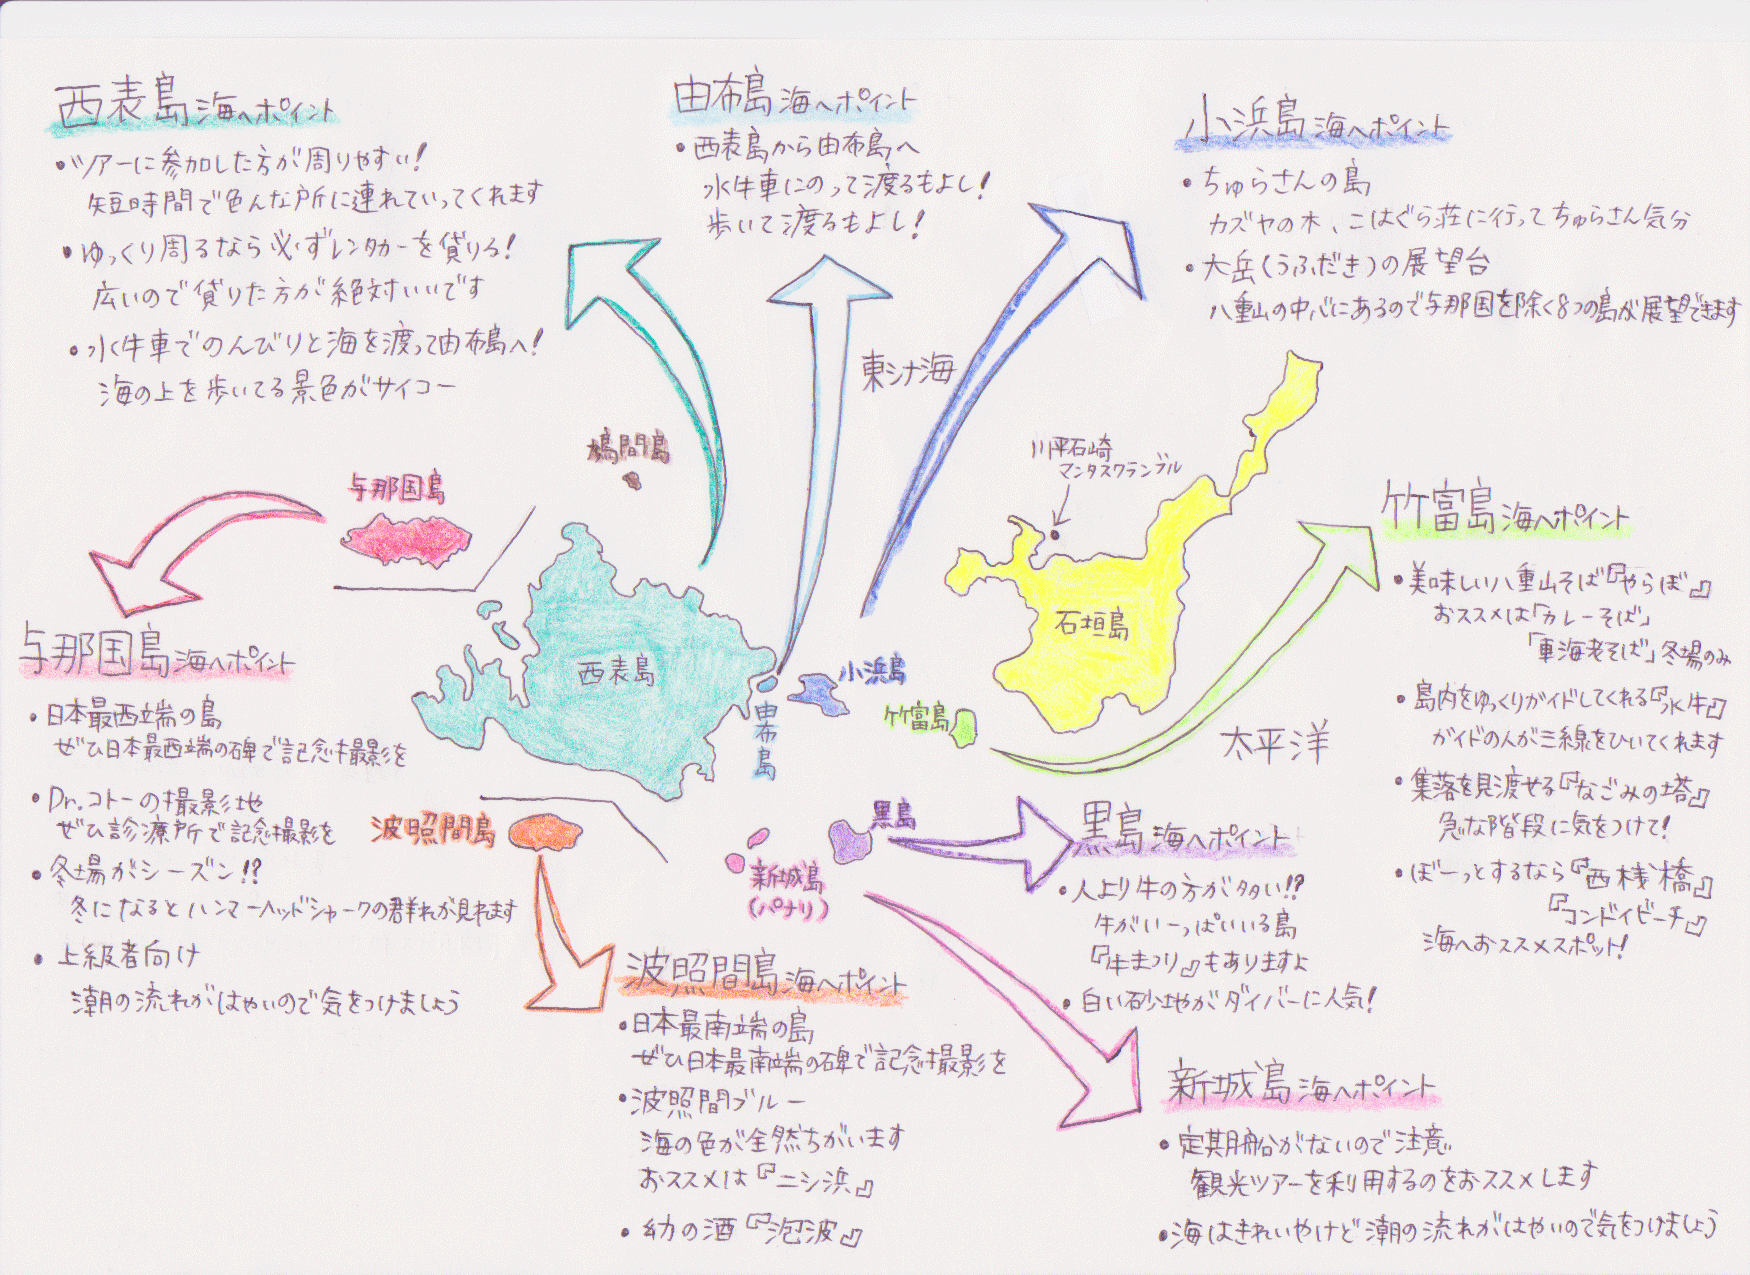 西表島 海へポイント
・ツアーに参加した方が周りやすい!
短時間で色んな所に連れていってくれます
・ゆっくり周るなら必ずレンタカーを貸りる!
広いので貸りた方が絶対いいです
・水牛車でのんびりと海を渡って由布島へ!
海の上を歩いてる景色がサイコー
由布島 海へポイント
・西表島から由布島へ
水牛車にのって渡るもよし!
歩いて渡るもよし!
小浜島 海へポイント
・ちゅらさんの島
カズヤの木、こはぐら荘に行ってちゅらさん気分
・大岳(うふだき)の展望台
八重山の中心にあるので与那国を除く8つの島が展望できます
東シナ海
鳩間島
与那国島
川平石崎
マンタスクランブル
石垣島
西表島
小浜島
由布島
竹富島
太平洋
波照間島
黒島
新城島
(パナリ)
竹富島 海へポイント
・美味しい八重山そば『やらぼ』
おススメは「カレーそば」
「車海老そば」冬場のみ
・島内をゆっくりガイドしてくれる『水牛』
ガイドの人が三線をひいてくれます
・集落を見渡せる『なごみの塔』
急な階段に気をつけて!
・ぼーっとするなら『西桟橋』
『コンドイビーチ』
海へおススメスポット!
与那国島 海へポイント
・日本最西端の島
ぜひ日本最西端の碑で記念撮影を
・Dr.コトーの撮影地
ぜひ診療所で記念撮影を
・冬場がシーズン!?
冬になるとハンマーヘッドシャークの群れが見れます
・上級者向け
潮の流れがはやいので気をつけましょう
波照間島 海へポイント
・日本最南端の島
ぜひ日本最南端の碑で記念撮影を
・波照間ブルー
海の色が全然ちがいます
おススメは『ニシ浜』
・幻の酒『泡波』
黒島 海へポイント
・人より牛の方が多い!?
牛がいーっぱいいる島
『牛まつり』もありますよ
・白い砂地がダイバーに人気!
新城島 海へポイント
・定期船がないので注意
観光ツアーを利用するのをおススメします
・海はきれいやけど潮の流れがはやいので気をつけましょう